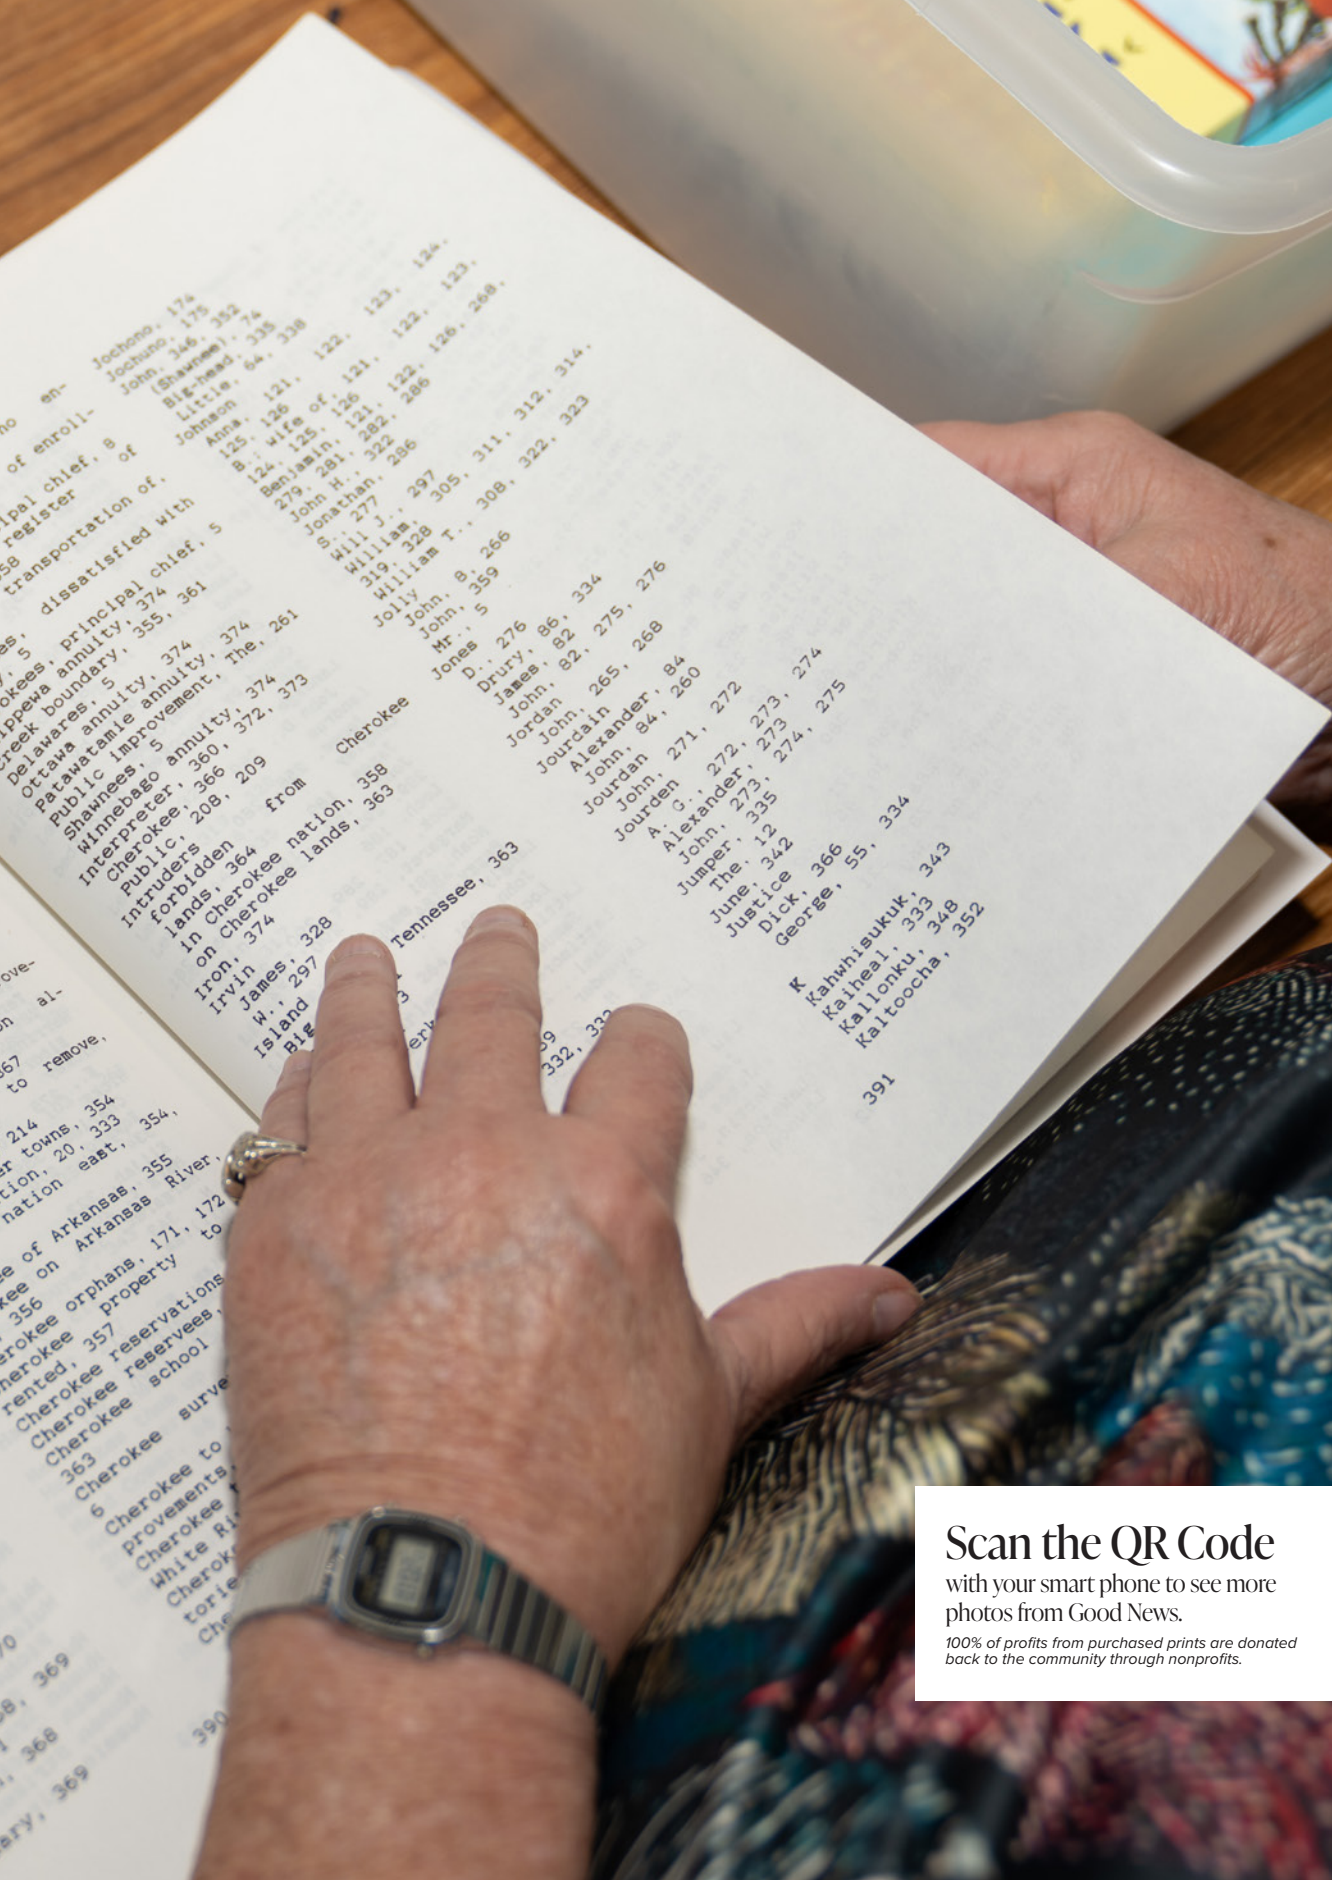 no en-
of enroll-
ipal chief, 8
register of
58
transportation of,
dissatisfied with
es,
, 5
okees, principal chief, 5
ippewa annuity, 374
reek boundary, 355, 361
Delawares, 5
Ottawa annuity, 374
Patawatamie annuity, 374
Public improvement, The, 261
Shawnees, 5
Winnebago annuity, 374
Interpreter, 360, 372, 373
Cherokee, 366
Public, 208, 209
Intruders
forbidden from Cherokee
lands, 364
in Cherokee nation, 358
on Cherokee lands, 363
Iron, 374
Irvin
James, 328
W., 297
Island
Big
Tennessee, 363
3
erk
39
332, 333
Jochono, 174
Jochuno, 175
John, 346, 352
(Shawnee), 74
Big-head, 335
Little, 64, 338
Johnson
Anna, 121, 122, 123, 124,
125, 126
B.; wife of, 121, 122, 123,
124, 125, 126
Benjamin, 121, 122, 126, 268,
279, 281, 282, 286
John H., 322
Jonathan, 286
S., 277
Will J., 297
William, 305, 311, 312, 314,
319, 328
William T., 308, 322, 323
Jolly
John, 8, 266
John, 359
Mr., 5
Jones
D., 276
Drury, 86, 334
James, 82
John, 82, 275, 276
Jordan
John, 265, 268
Jourdain
Alexander, 84
John, 84, 260
Jourdan
John, 271, 272
Jourden
A. G., 272, 273, 274
Alexander, 273
John, 273, 274, 275
Jumper, 335
The, 12
June, 342
Justice
Dick, 366
George, 55, 334
K
Kahwhisukuk, 343
Kaiheal, 333
Kallonku, 348
Kaltoocha, 352
391
ove-
on al-
367
to remove,
214
er towns, 354
tion, 20, 333
nation east, 354,
ee of Arkansas, 355
kee on Arkansas River,
, 356
erokee orphans, 171, 172
herokee property to
rented, 357
Cherokee reservations
Cherokee reservees,
Cherokee school
363
Cherokee surve
6
Cherokee to
provements,
Cherokee
White Ri
Cherok
torie
Che
70
68, 369
, 368
ary, 369
390
Scan the QR Code
with your smart phone to see more
photos from Good News.
100% of profits from purchased prints are donated
back to the community through nonprofits.